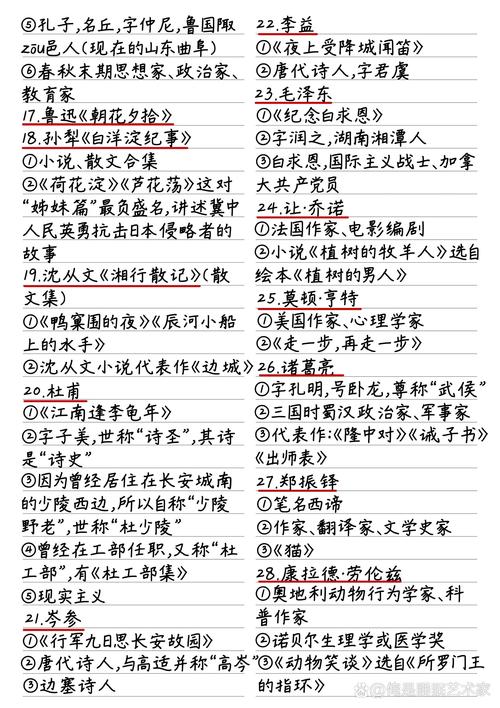 ⑤孔子,名丘,字仲尼,鲁国陬
zōu邑人(现在的山东曲阜)
⑥春秋末期思想家、政治家、
教育家
17.鲁迅《朝花夕拾》
18.孙犁《白洋淀纪事》
①小说、散文合集
②《荷花淀》《芦花荡》这对
“姊妹篇”最负盛名,讲述冀中
人民英勇抗击日本侵略者的
故事
19.沈从文《湘行散记》(散
文集)
①《鸭窠围的夜》《辰河小船
上的水手》
②沈从文小说代表作《边城》
20.杜甫
①《江南逢李龟年》
②字子美,世称“诗圣”,其诗
是“诗史”
③因为曾经居住在长安城南
的少陵西边,所以自称“少陵
野老”,世称“杜少陵”
④曾经在工部任职,又称“杜
工部”,有《杜工部集》
⑤现实主义
21.岑参
①《行军九日思长安故园》
②唐代诗人,与高适并称“高岑”
③边塞诗人
22.李益
①《夜上受降城闻笛》
②唐代诗人,字君虞
23.毛泽东
①《纪念白求恩》
②字润之,湖南湘潭人
③白求恩,国际主义战士、加拿
大共产党员
24.让·乔诺
①法国作家、电影编剧
②小说《植树的牧羊人》选自
绘本《植树的男人》
25.莫顿·亨特
①美国作家、心理学家
②《走一步,再走一步》
26.诸葛亮
①字孔明,号卧龙,尊称“武侯”
②三国时蜀汉政治家、军事家
③代表作:《隆中对》《诫子书》
《出师表》
27.郑振铎
①笔名西谛
②作家、翻译家、文学史家
③《猫》
28.康拉德·劳伦兹
①奥地利动物行为学家、科
普作家
②诺贝尔生理学或医学奖
③《动物笑谈》选自《所罗门王
的指环》